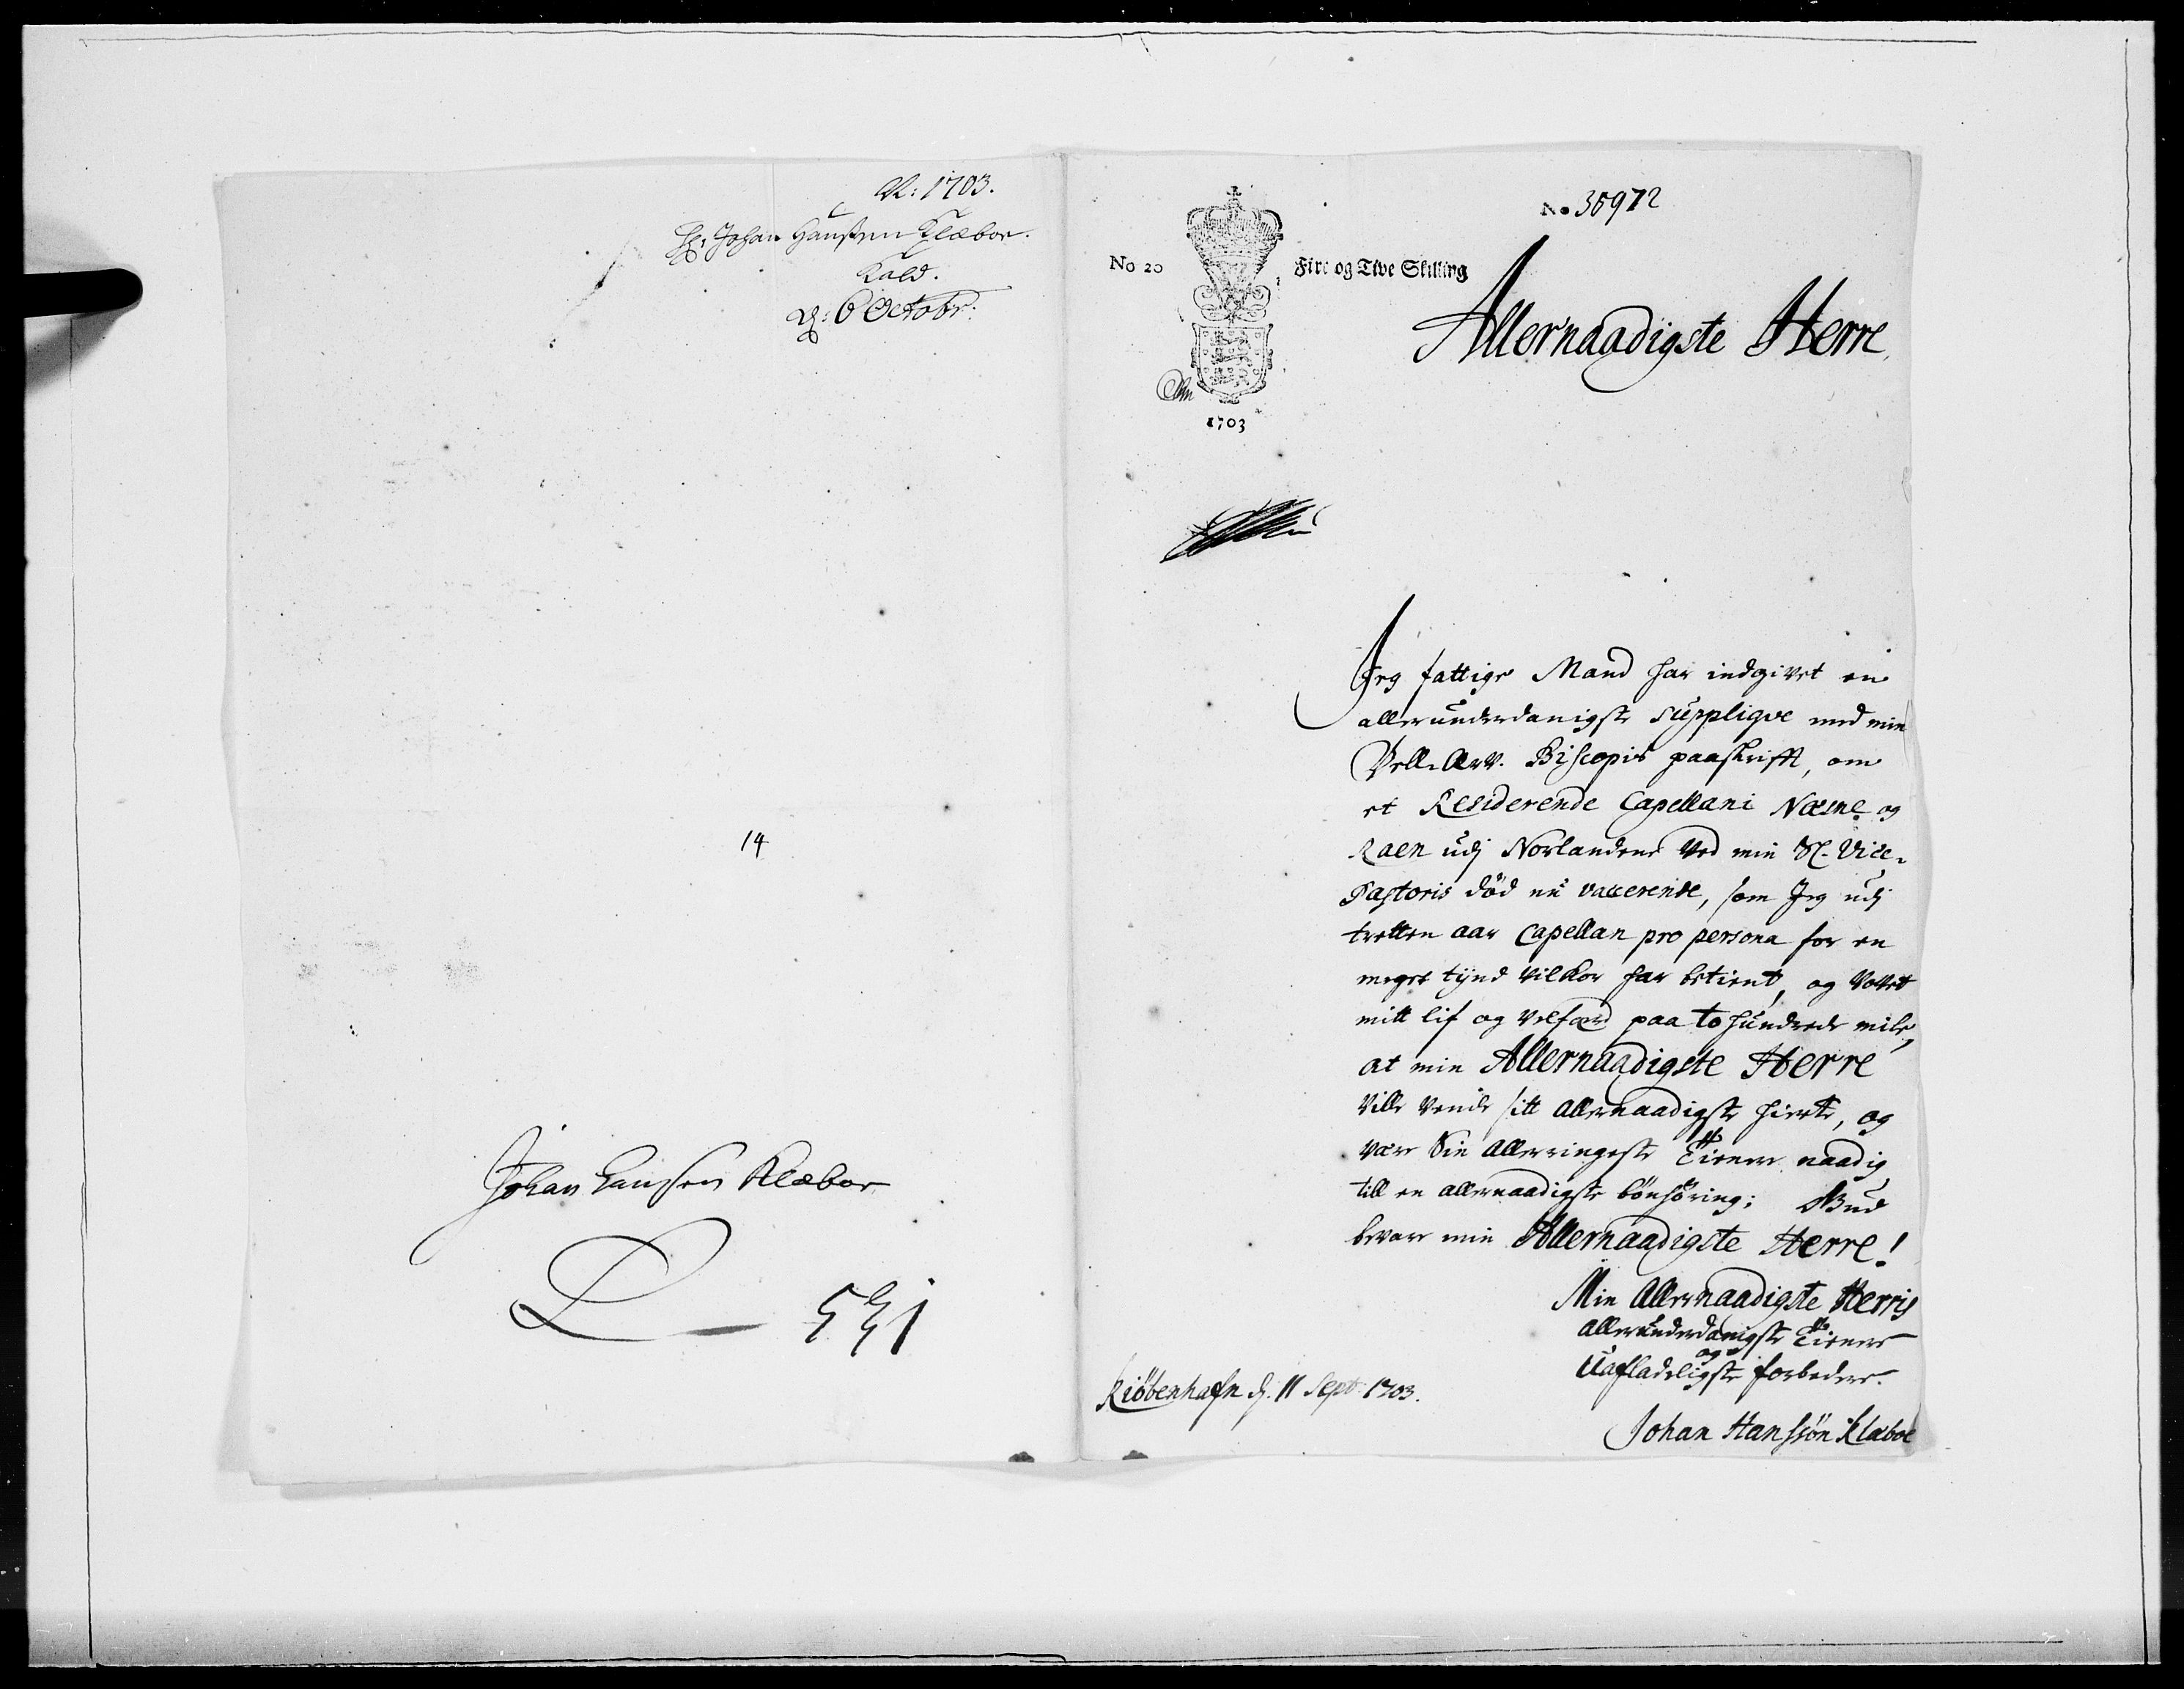 A: 1703.
Hr: Johan Hanßen Klæboe.
Kald.
d: 6 Octobr:
14
Johan Hansen Klæboe
551
No 30972
No 20
Fire og Tive Skilling
1703
Allernaadigste Herre,
Jeg fattige Mand har indgivet en
allerunderdanigste Suppliqve med min
Vell-Ærv. Biscopis paaskrifft, om
et Residerende Capellani Næsne og
Raen udj Norlandene ved min Sl. Vice-
Pastoris død nu vaccerende, som Jeg udj
tretten aar Capellan pro persona for en
meget tynd vilkor har betient, og vovet
mitt lif og velfærd paa to hundrede mile,
at min Allernaadigste Herre
ville vende sitt allernaadigste hierte, og
være Sin allerringeste Tienere naadig
till en allernaadigste bønhøring; Gud
bevare min Allernaadigste Herre!
Min Allernaadigste Herris
allerunderdanigste Tienere
og
Uafladeligste forbedere.
Kiøbenhafn d. 11 Sept. 1703.
Johan Hanssøn Klæboe